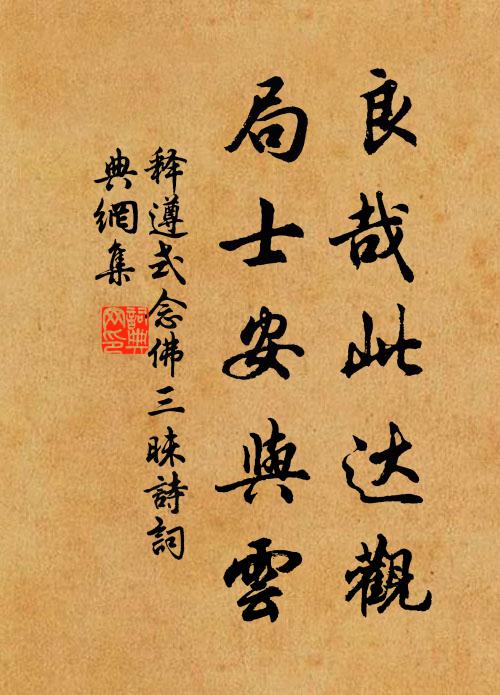 良哉此达觀
局士安與雲
释遵式念佛三昧詩詞
典網集
詞典網印